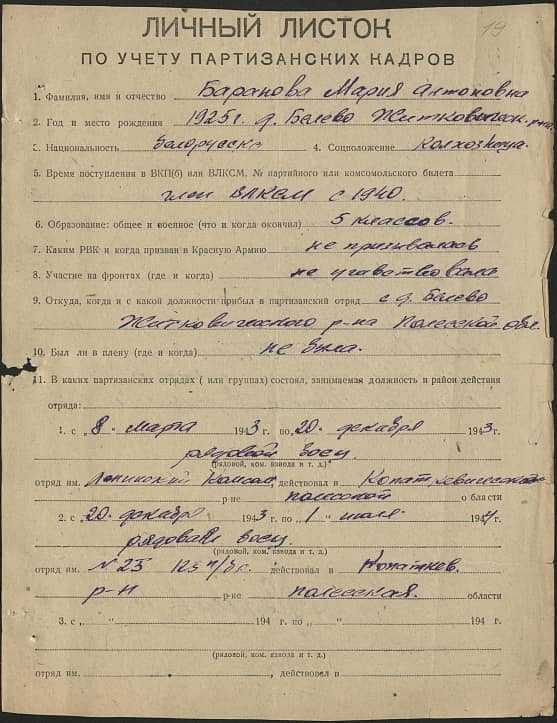 19
ЛИЧНЫЙ ЛИСТОК
ПО УЧЕТУ ПАРТИЗАНСКИХ КАДРОВ
1. Фамилия, имя и отчество Баранова Мария Антоновна
2. Год и место рождения 1925 г. д. Белево Житкович. р-на
3. Национальность белорусска 4. Соцположение колхозница.
5. Время поступления в ВКП(б) или ВЛКСМ, № партийного или комсомольского билета
член ВЛКСМ с 1940.
6. Образование: общее и военное (что и когда окончил) 5 классов.
7. Каким РВК и когда призван в Красную Армию не призывалась
8. Участие на фронтах (где и когда) не учавствовала
9. Откуда, когда и с какой должности прибыл в партизанский отряд с д. Белево
Житковического р-на Полесской обл.
10. Был ли в плену (где и когда) не была.
11. В каких партизанских отрядах ( или группах) состоял, занимаемая должность и район действия
отряда:
1. с „8. марта 1943 г. по „20. декабря 1943 г.
рядовой боец
(рядовой, ком. взвода и т. д.)
отряд им. Ленинский Комсом., действовал в
р-не полесской области
2. с „20. декабря 1943 г. по „1" июля 1944 г.
рядовой боец.
(рядовой, ком. взвода и т. д.)
отряд им. N 23 123 п/бр. действовал в Копаткев.
р-н р-не полесская. области
3. с „ " 194 г. по „ " 194 г.
(рядовой, ком. взвода и т. д.)
отряд им. , действовал в